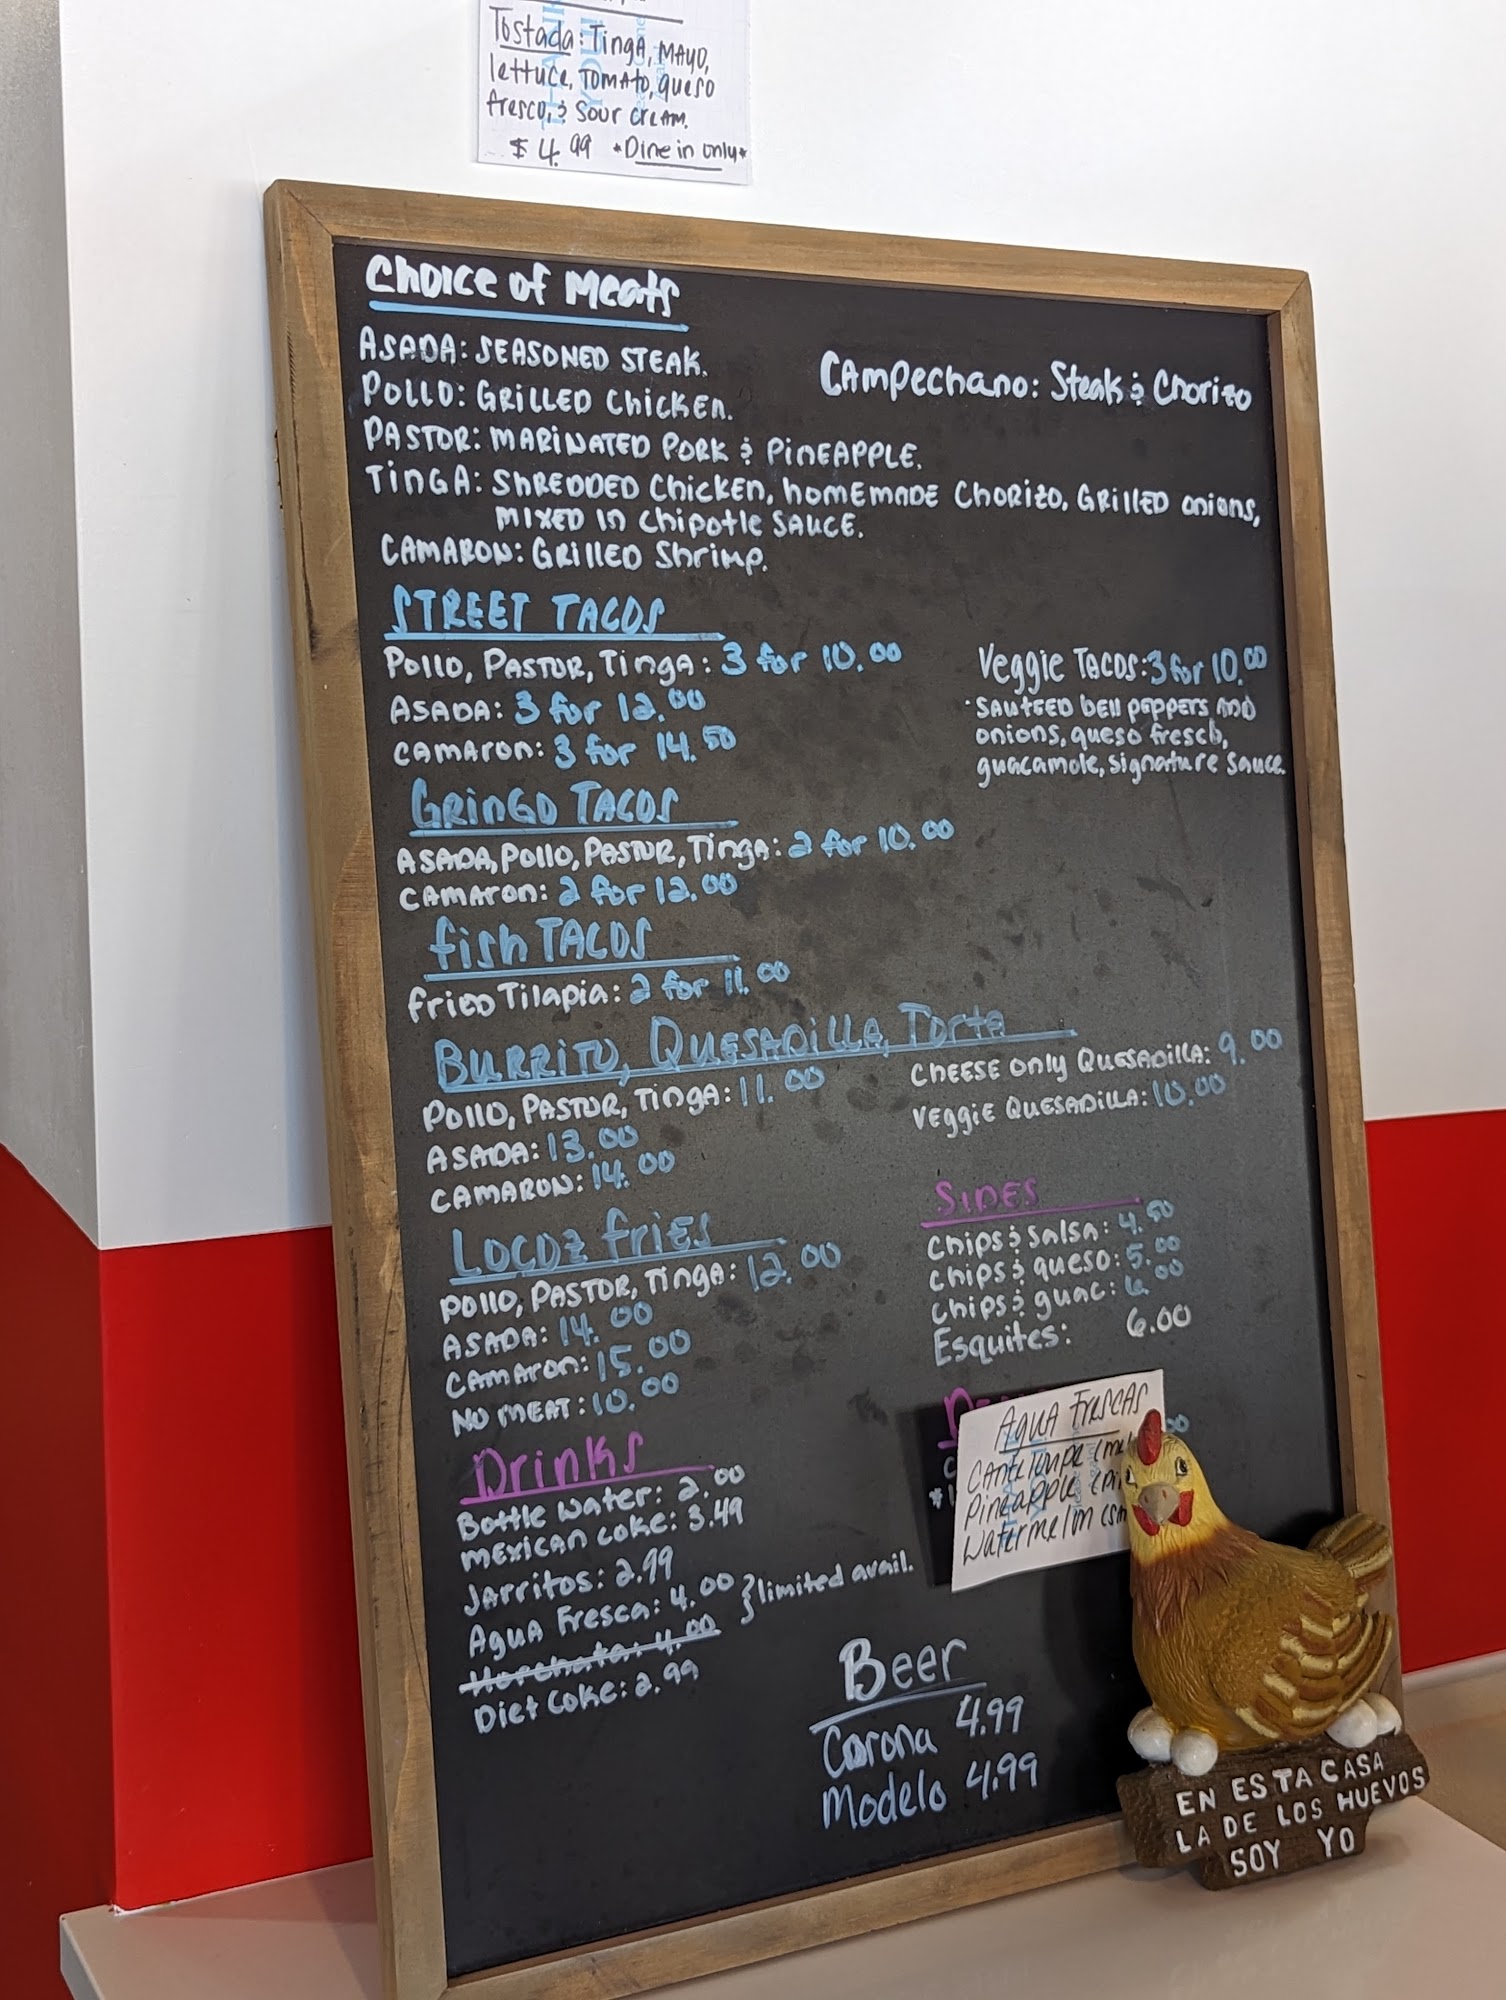 Tostada: Tinga, Mayo,
lettuce, Tomato, queso
fresco, & sour cream.
$4.99 *Dine in only*
Choice of Meats
Asada: Seasoned Steak.
Campechano: Steak & Chorizo
Pollo: Grilled Chicken.
Pastor: Marinated Pork & Pineapple.
Tinga: Shredded Chicken, homemade Chorizo, Grilled onions,
mixed in chipotle sauce.
Camaron: Grilled Shrimp.
Street Tacos
Pollo, Pastor, Tinga: 3 for 10.00
Asada: 3 for 12.00
Camaron: 3 for 14.50
Veggie Tacos: 3 for 10.00
·Sauteed bell peppers and
onions, queso fresco,
guacamole, signature sauce.
Gringo Tacos
Asada, Pollo, Pastor, Tinga: 2 for 10.00
Camaron: 2 for 12.00
fish Tacos
fried Tilapia: 2 for 11.00
Burrito, Quesadilla, Torta
Pollo, Pastor, Tinga: 11.00
Asada: 13.00
Camaron: 14.00
Cheese only Quesadilla: 9.00
Veggie Quesadilla: 10.00
Locoz fries
Pollo, Pastor, Tinga: 12.00
Asada: 14.00
Camaron: 15.00
No meat: 10.00
Sides
Chips & Salsa: 4.50
Chips & queso: 5.00
Chips & guac: 6.00
Esquites: 6.00
Drinks
Bottle water: 2.00
mexican coke: 3.49
Jarritos: 2.99
Agua Fresca: 4.00 } limited avail.
Horchata: 4.00
Diet Coke: 2.99
Agua Frescas
Canteloupe
Pineapple
Watermelon
Beer
Corona 4.99
Modelo 4.99
EN ESTA CASA
LA DE LOS HUEVOS
SOY YO